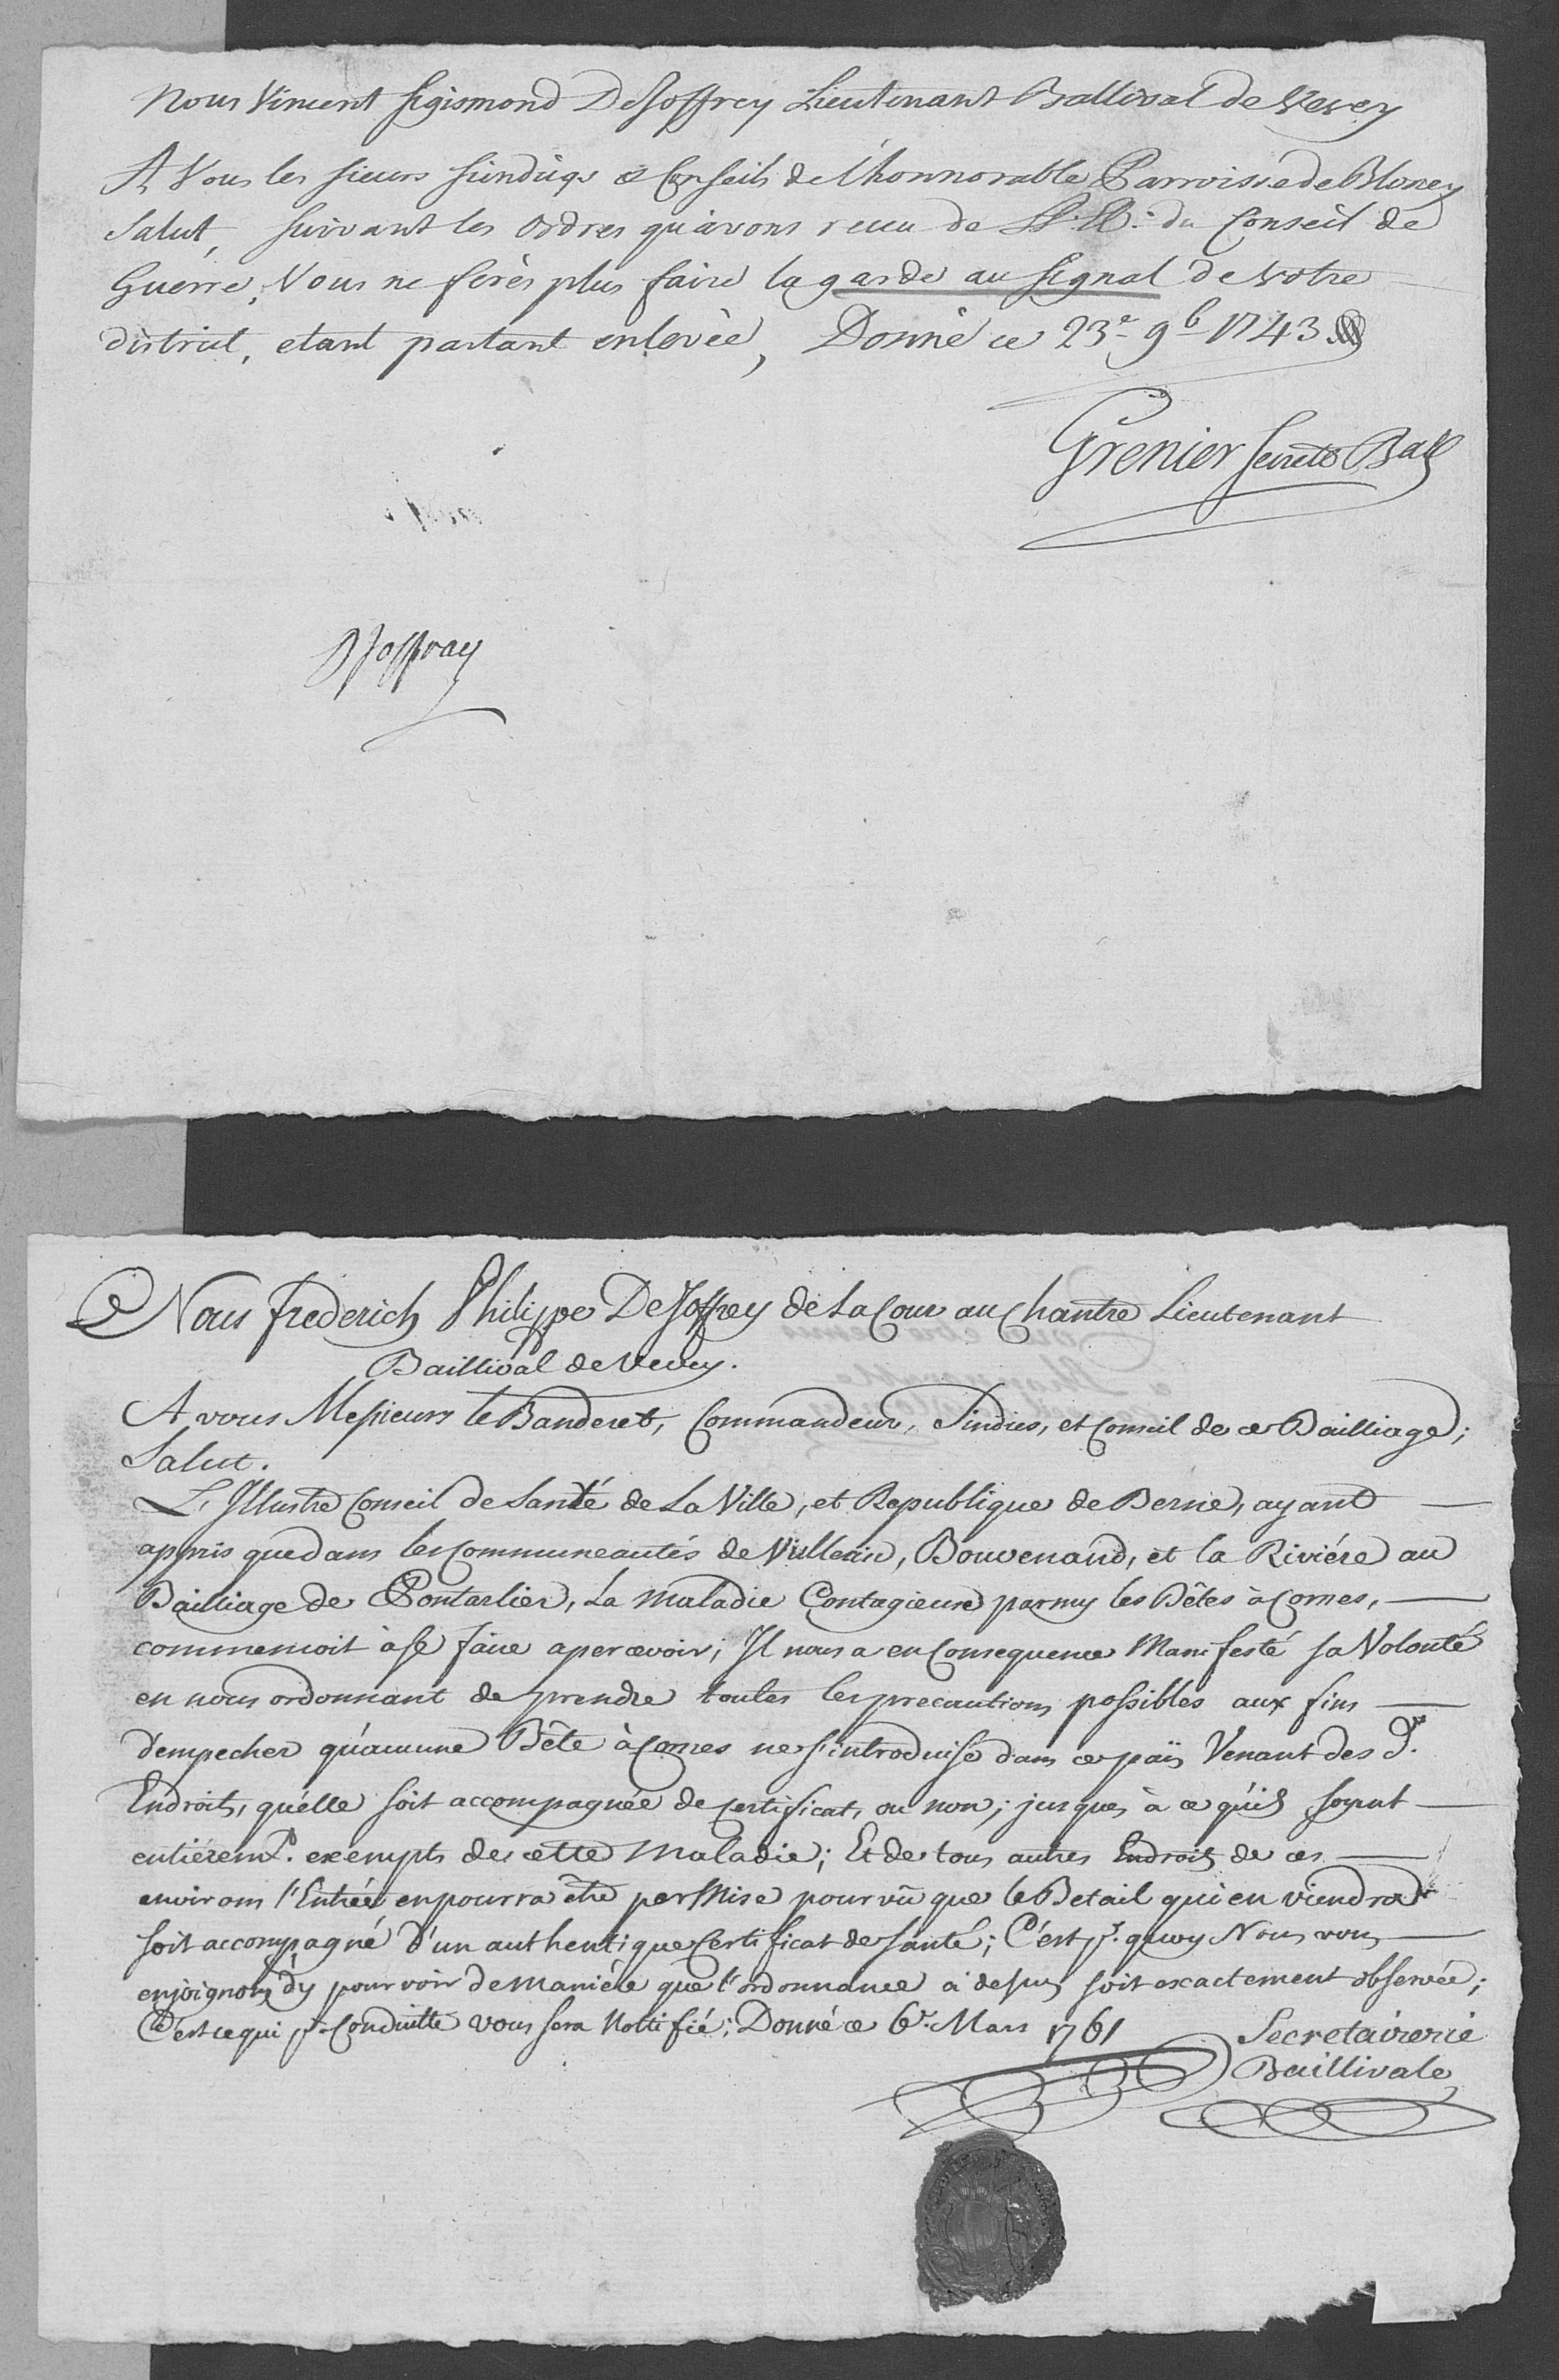 Nous Vincent Sigismond DeJoffrey Lieutenant Ballival de Vevey
A Vous les sieurs sindiqs & Conseils de l'honnorable Parroisse de Bloney
Salut, suivant les Ordres qu'avons receu de LL.EE. du Conseil de
Guerre, Vous ne ferés plus faire la garde au signal de votre
district, etant partant enlevée, Donné ce 23e 9b 1743.
Grenier Secrete Ball
DJoffray
Nous frederich Philippe DeJoffrey de La Cour au Chantre Lieutenant
Baillival de Vevey.
A vous Messieurs le Banderet, Commandeur, Sindics, et Conseil de ce Bailliage;
Salut.
L'Jllustre Conseil de Santé de La Ville, et Republique de Berne, ayant
appris que dans les Communeautés de Vullecin, Bouvenand, et la Riviére au
Bailliage de Pontarlier, La Maladie Contagieuse parmy les Bêtes à Cornes,
commencoit à se faire apercevoir; Jl nous a en Consequence Manifesté sa Volonté
en nous ordonnant de prendre toutes les precautions possibles aux fins
d'empecher qu'aucune Bête à Cornes ne s'introduise dans ce païs Venant des dts.
Endroits, qu'elle soit accompagnée de Certificat, ou non; jusques à ce qu'ils soyent
entiéremt. exempts de cette Maladie; Et de tous autres Endroits de ces
environs l'Entrée en pourra être permise pourvû que le Betail qui en viendra
soit accompagné d'un authentique Certificat de santé; C'est pr. quoy Nous vous
enjoignons d'y pourvoir de maniére que l'ordonnance ci dessus soit exactement observée;
C'est ce qui pr. Conduitte vous sera Nottifié; Donné ce 6e. Mars 1761
Secretairerie
Baillivale